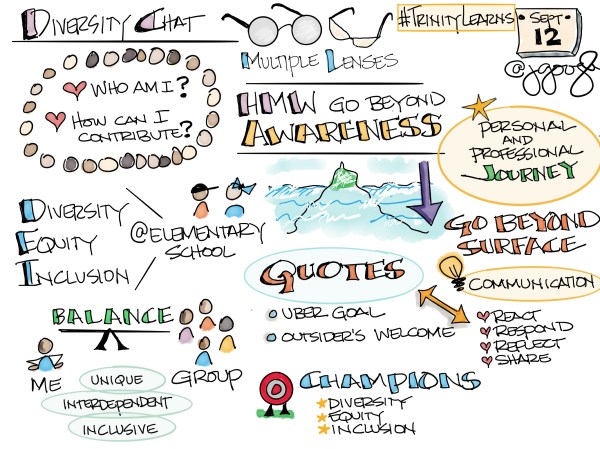 Diversity Chat
#TrinityLearns
Sept
12
Multiple Lenses
Who am I?
How can I
contribute?
HMW go beyond
Awareness
Personal
and
Professional
Journey
Diversity
Equity
Inclusion
@Elementary
School
Go Beyond
Surface
Quotes
Uber Goal
Outsider's Welcome
Communication
React
Respond
Reflect
Share
Balance
Me
Group
Unique
Interdependent
Inclusive
Champions
Diversity
Equity
Inclusion